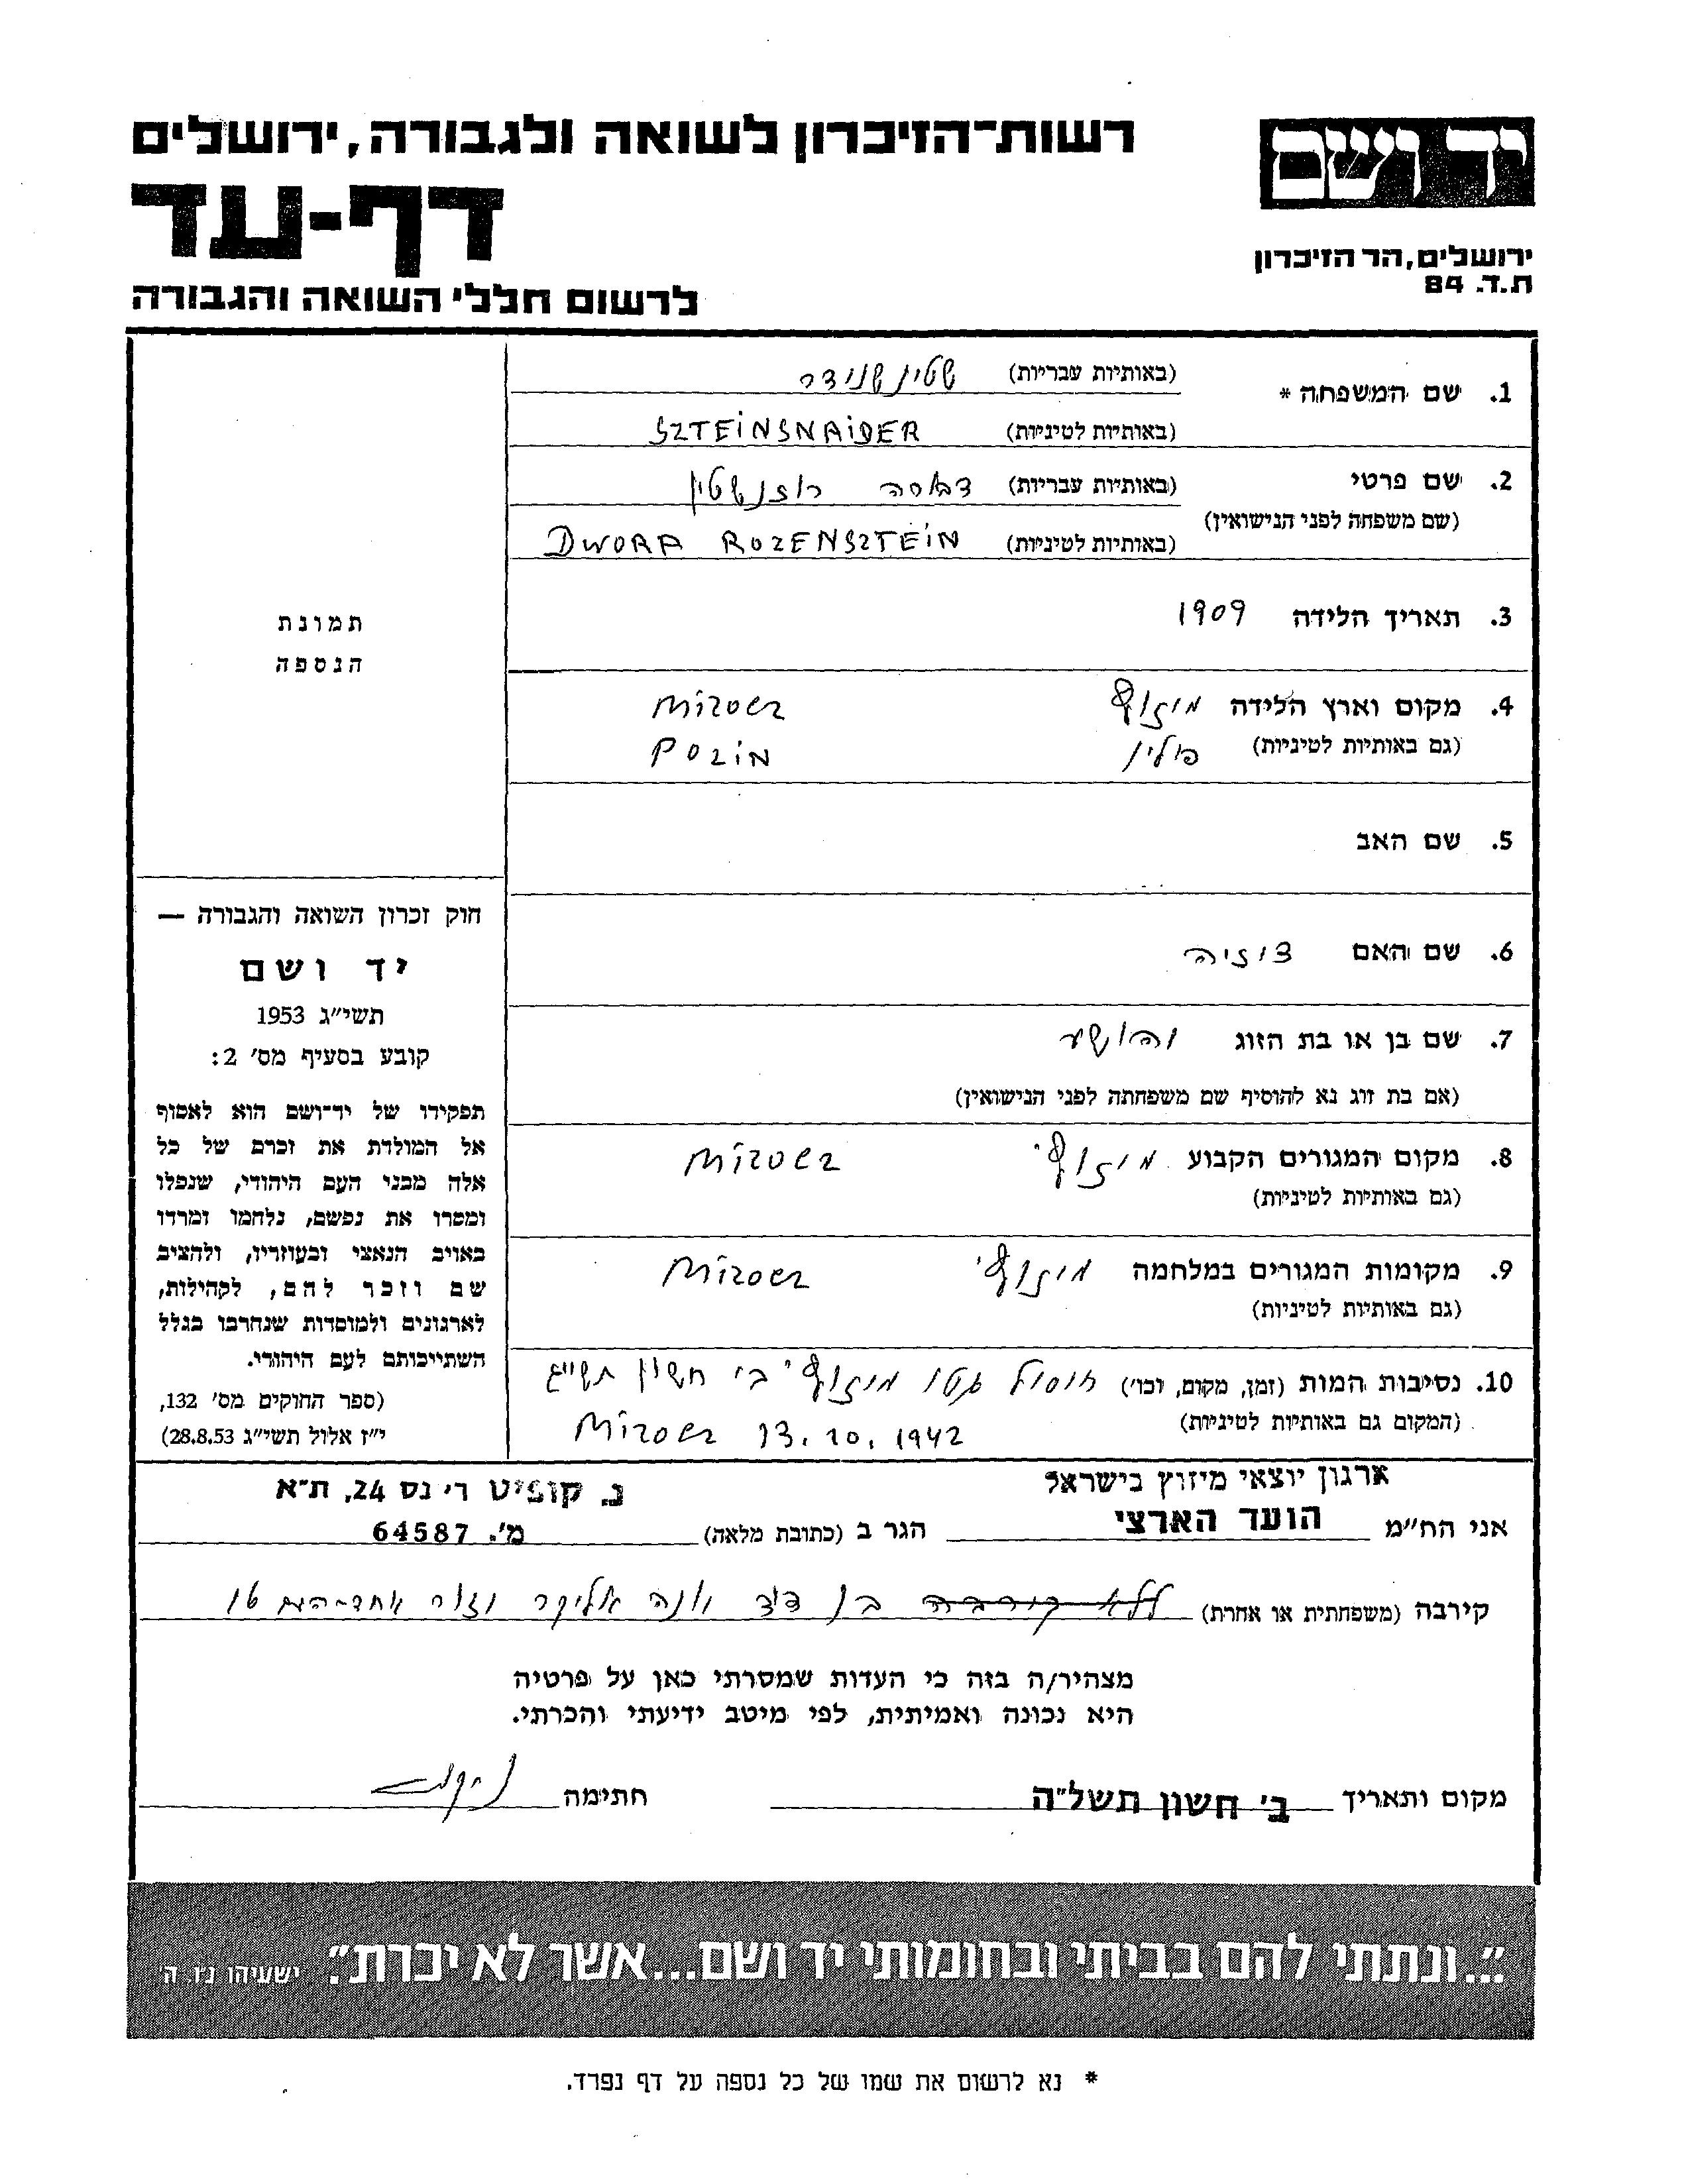 רשות־הזיכרון לשואה ולגבורה, ירושלים
דף-עד
לרשום חללי השואה והגבורה
יד ושם
ירושלים, הר הזיכרון
ת.ד. 84
1. שם המשפחה *
(באותיות עבריות) שטינשנידר
(באותיות לטיניות) SZTEINSNAIDER
2. שם פרטי
(שם משפחה לפני הנישואין)
(באותיות עבריות) דבורה רוזנשטין
(באותיות לטיניות) DWORA ROZENSZTEIN
3. תאריך הלידה 1909
4. מקום וארץ הלידה מיזוץ Mizocz
(גם באותיות לטיניות) פולין POLIN
5. שם האב
6. שם האם
7. שם בן או בת הזוג יהושע
(אם בת זוג נא להוסיף שם משפחתה לפני הנישואין)
8. מקום המגורים הקבוע מיזוץ' Mizocz
(גם באותיות לטיניות)
9. מקומות המגורים במלחמה מיזוץ' Mizocz
(גם באותיות לטיניות)
10. נסיבות המות (זמן, מקום, וכו') חוסול גטו מיזוץ' ב' חשון תש"ג
(המקום גם באותיות לטיניות) Mizocz 13.10.1942
תמונת
הנספה
חוק זכרון השואה והגבורה —
יד ושם
תשי"ג 1953
קובע בסעיף מס' 2:
תפקידו של יד־ושם הוא לאסוף
אל המולדת את זכרם של כל
אלה מבני העם היהודי, שנפלו
ומסרו את נפשם, נלחמו ומרדו
באויב הנאצי ובעוזריו, ולהציב
שם וזכר להם, לקהילות,
לארגונים ולמוסדות שנחרבו בגלל
השתייכותם לעם היהודי.
(ספר החוקים מס' 132,
י"ז אלול תשי"ג 28.8.53)
ארגון יוצאי מיזוץ בישראל
אני הח"מ הועד הארצי
נ. קופיט ר' נס 24, ת"א
הגר ב (כתובת מלאה) מ'. 64587
קירבה (משפחתית או אחרת) ללא קירבה בן דוד
מצהיר/ה בזה כי העדות שמסרתי כאן על פרטיה
היא נכונה ואמיתית, לפי מיטב ידיעתי והכרתי.
מקום ותאריך ב' חשון תשל"ה חתימה
"...ונתתי להם בביתי ובחומותי יד ושם...אשר לא יכרת". ישעיהו נ"ו, ה'
* נא לרשום את שמו של כל נספה על דף נפרד.